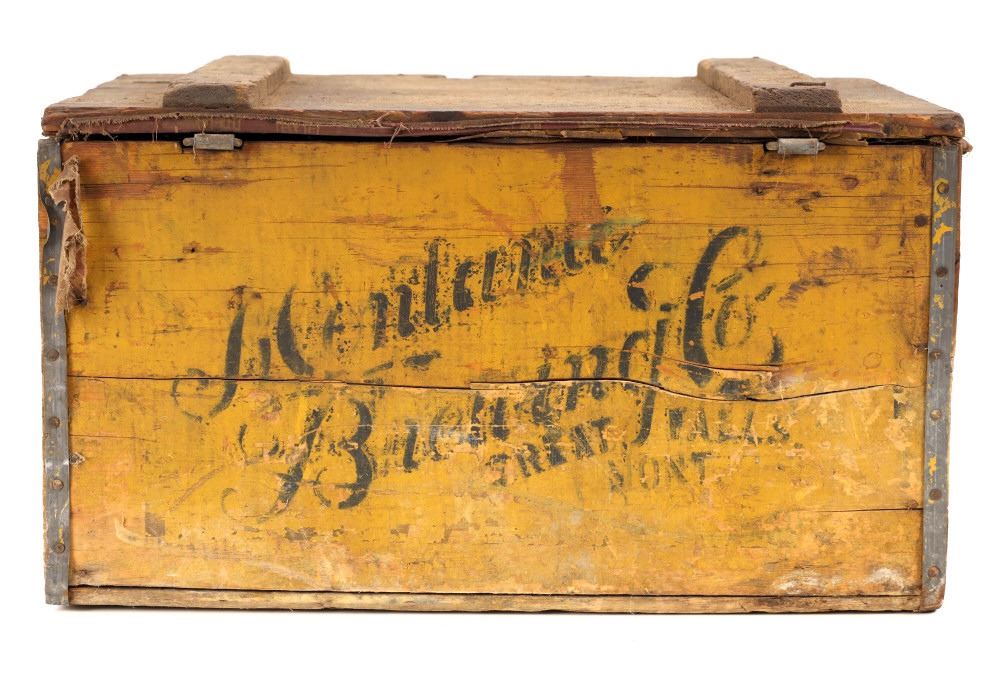 Montana
Brewing Co
GREAT FALLS
MONT